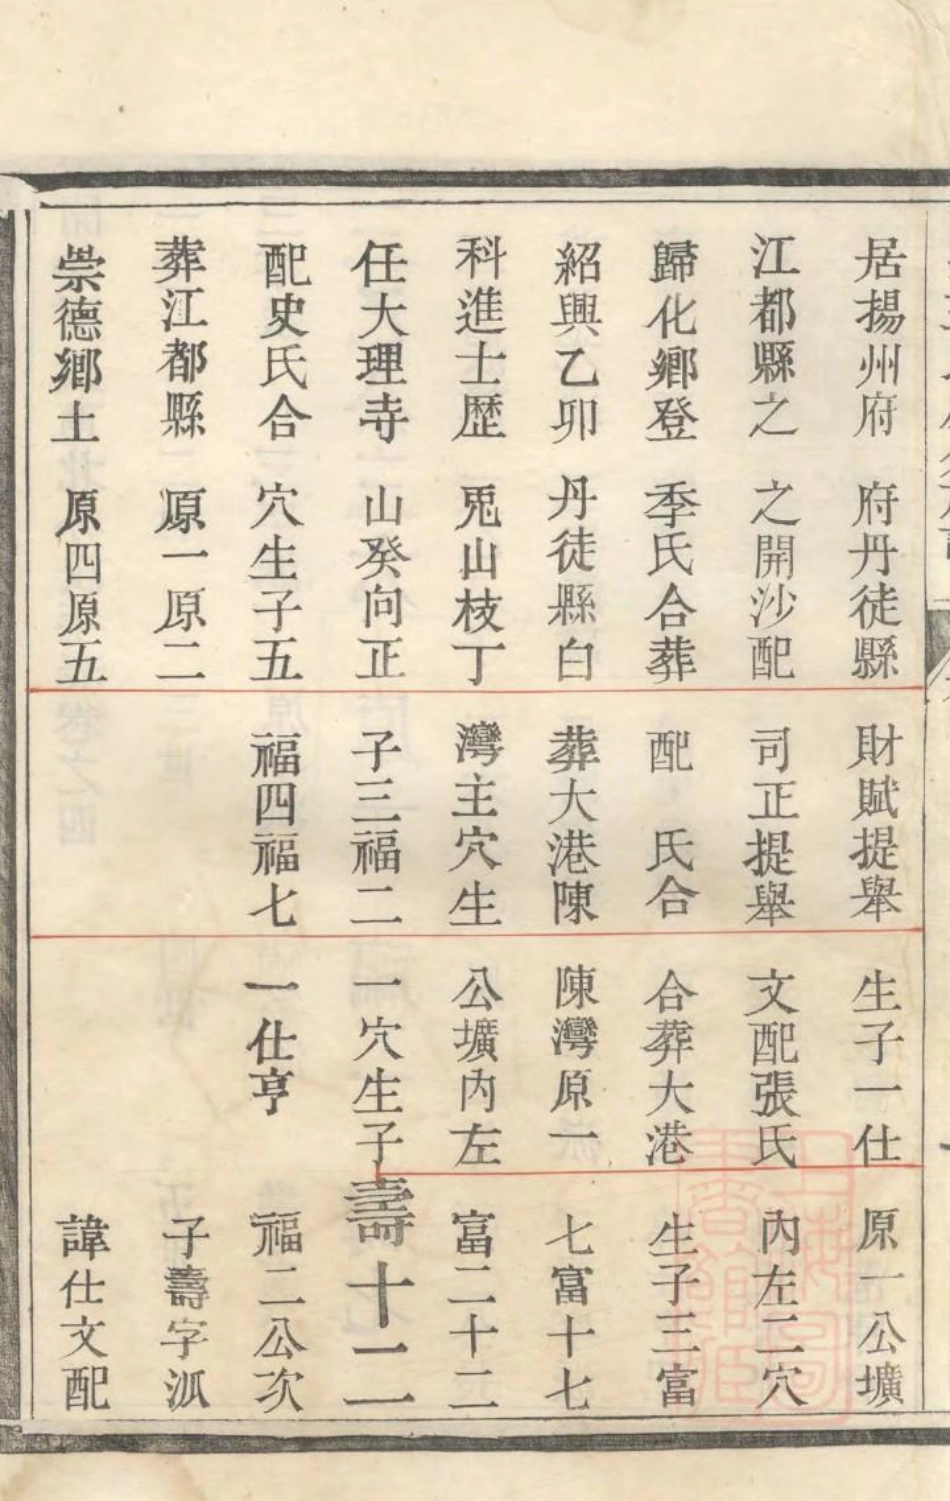 居揚州府
江都縣之
歸化鄉登
紹興乙卯
科進士歷
任大理寺
配史氏合
葬江都縣
崇德鄉土
府丹徒縣
之開沙配
季氏合葬
丹徒縣白
兎山枝丁
山癸向正
穴生子五
原一原二
原四原五
財賦提舉
司正提舉
配　氏合
葬大港陳
灣主穴生
子三福二
福四福七
生子一仕
文配張氏
合葬大港
陳灣原一
公壙內左
一穴生子
一仕亨
原一公壙
內左二穴
生子三富
七富十七
富二十二
壽十二
福二公次
子壽字派
諱仕文配